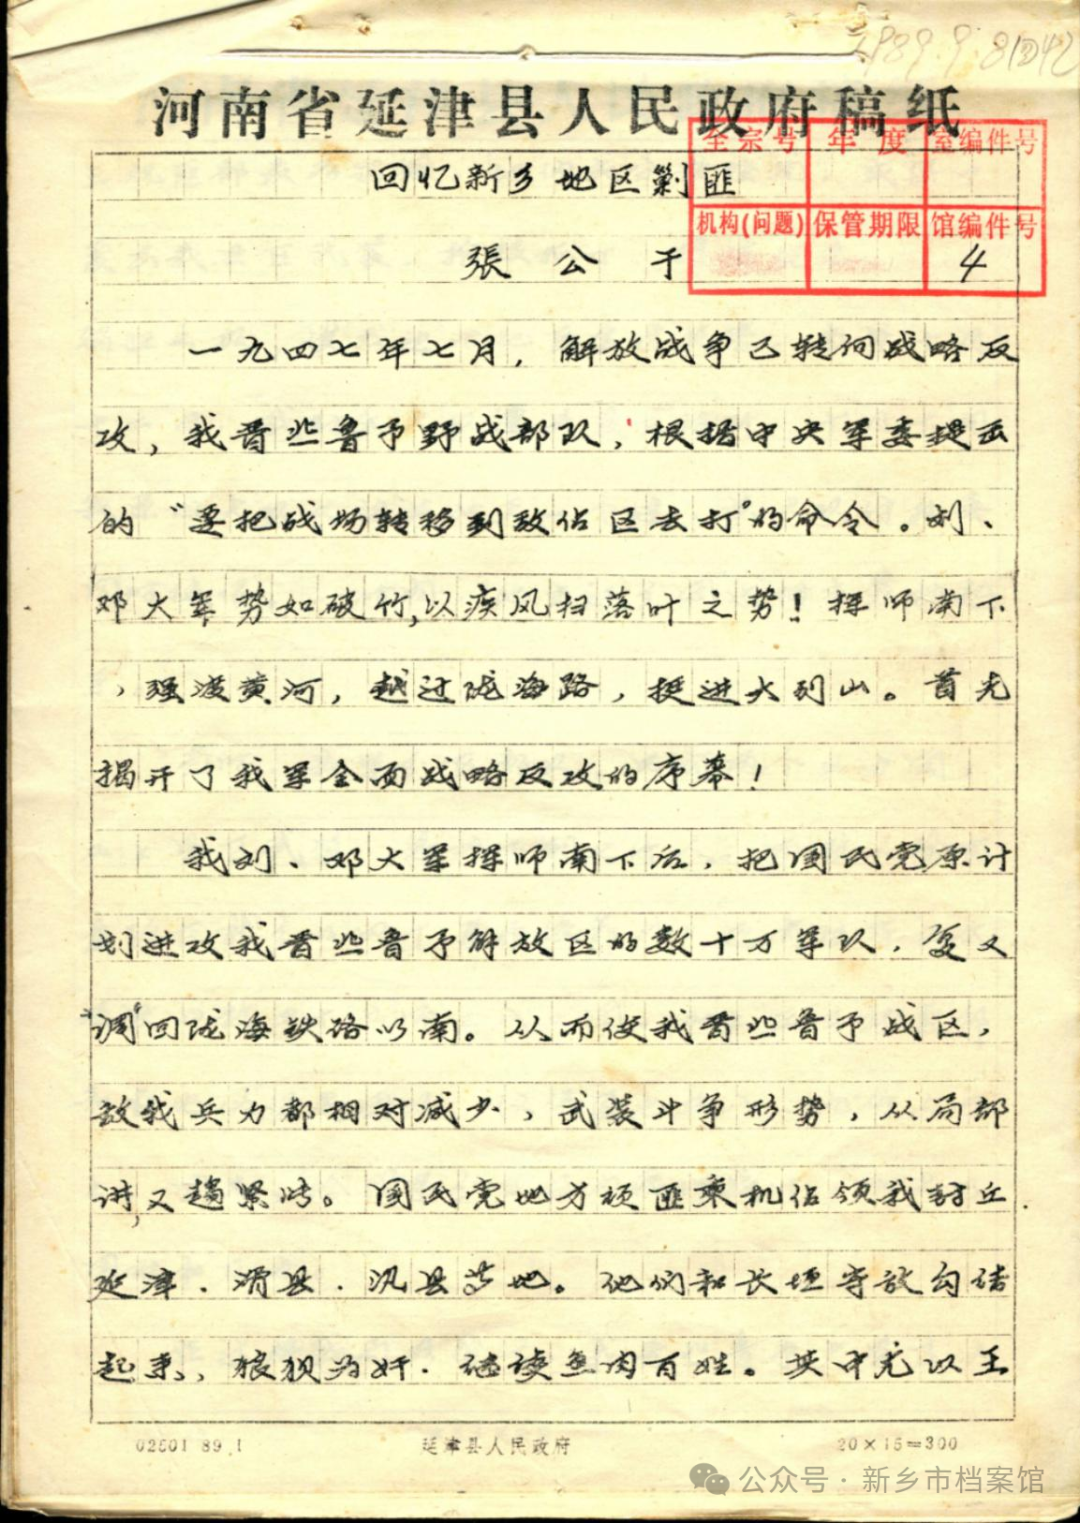 1989.9.8
河南省延津县人民政府稿纸
全宗号 年度 室编件号
回忆新乡地区剿匪
机构(问题) 保管期限 馆编件号
張公干
4
一九四七年七月，解放战争已转向战略反
攻，我晋些鲁予野战部队，根据中央军委提出
的“要把战场转移到敌佔区去打”的命令。刘、
邓大军势如破竹,以疾风扫落叶之势！挥师南下
，强渡黄河，越过陇海路，挺进大别山。首先
揭开了我军全面战略反攻的序幕！
我刘、邓大军挥师南下后，把国民党原计
划进攻我晋些鲁予解放区的数十万军队，复又
“调”回陇海铁路以南。从而使我晋些鲁予战区，
敌我兵力都相对减少，武装斗争形势，从局部
讲,又趋紧张。国民党地方顽匪乘机佔领我封丘
延津．滑县．汛县等地。他们和长垣等敌勾结
起来，狼狈为奸．继续鱼肉百姓。其中尤以王
02501 89.1
延津县人民政府
20×15=300
公众号·新乡市档案馆